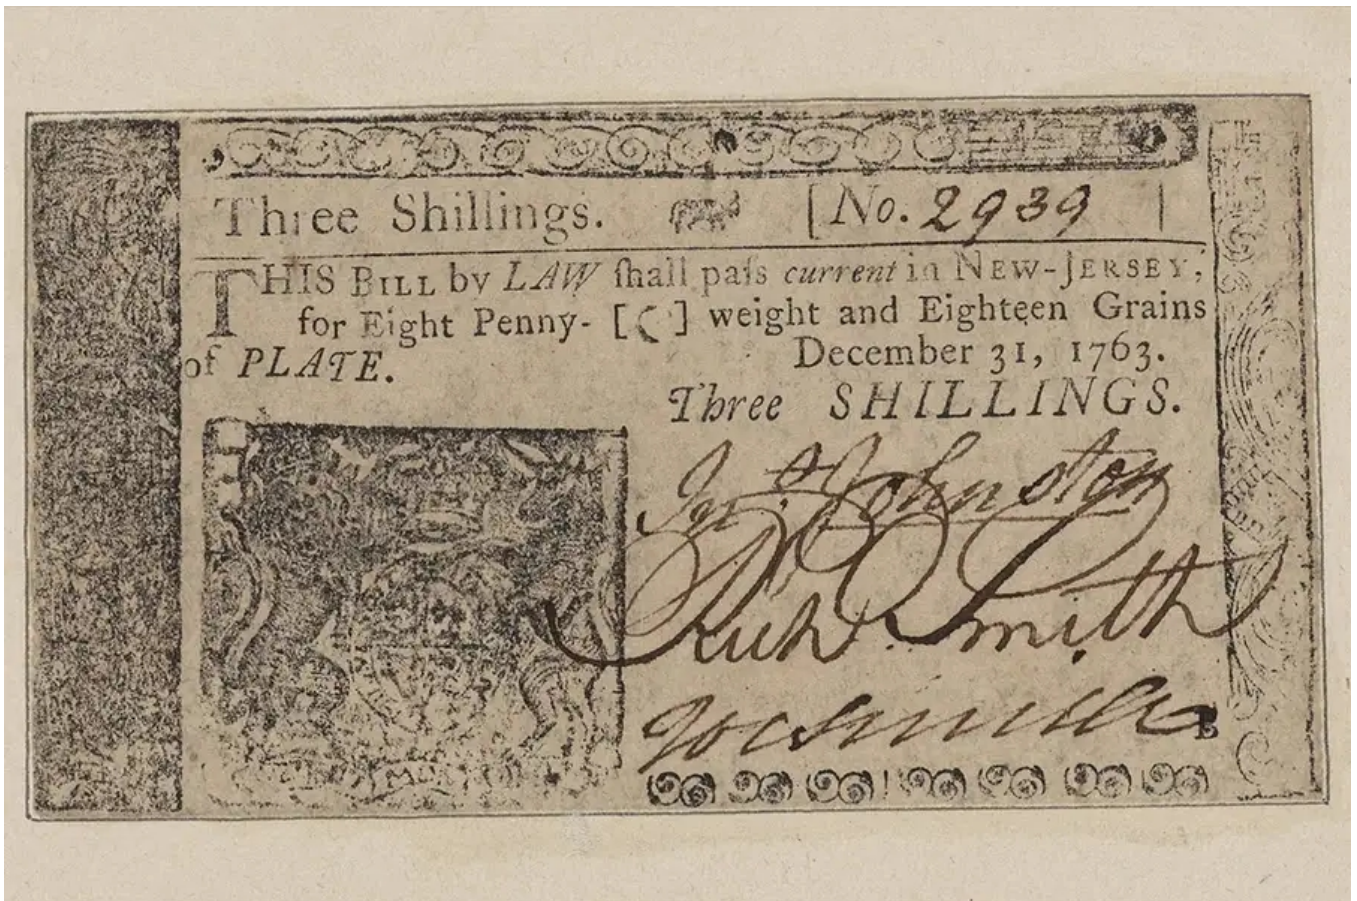 Three Shillings. [No. 2939]
THIS BILL by LAW ſhall paſs current in NEW-JERSEY,
for Eight Penny- [ ] weight and Eighteen Grains
of PLATE. December 31, 1763.
Three SHILLINGS.
Johnston
Rich Smith
B